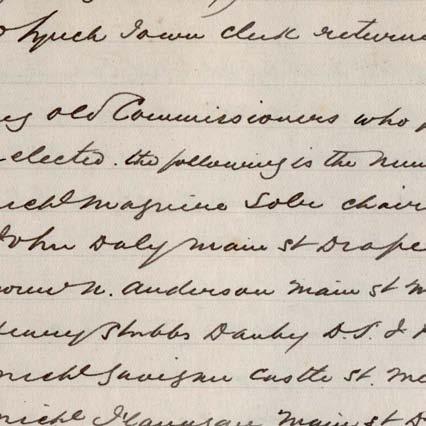 Lynch Town clerk return
old Commissioners who
elected. the following is the num
Michl Maguire Solr chair
John Daly Main St Drape
N. Anderson Main St M
Henry Stubbs Danby D.L. & 
Michl Gavigan Castle St. Me
Michl Flanagan Main St D